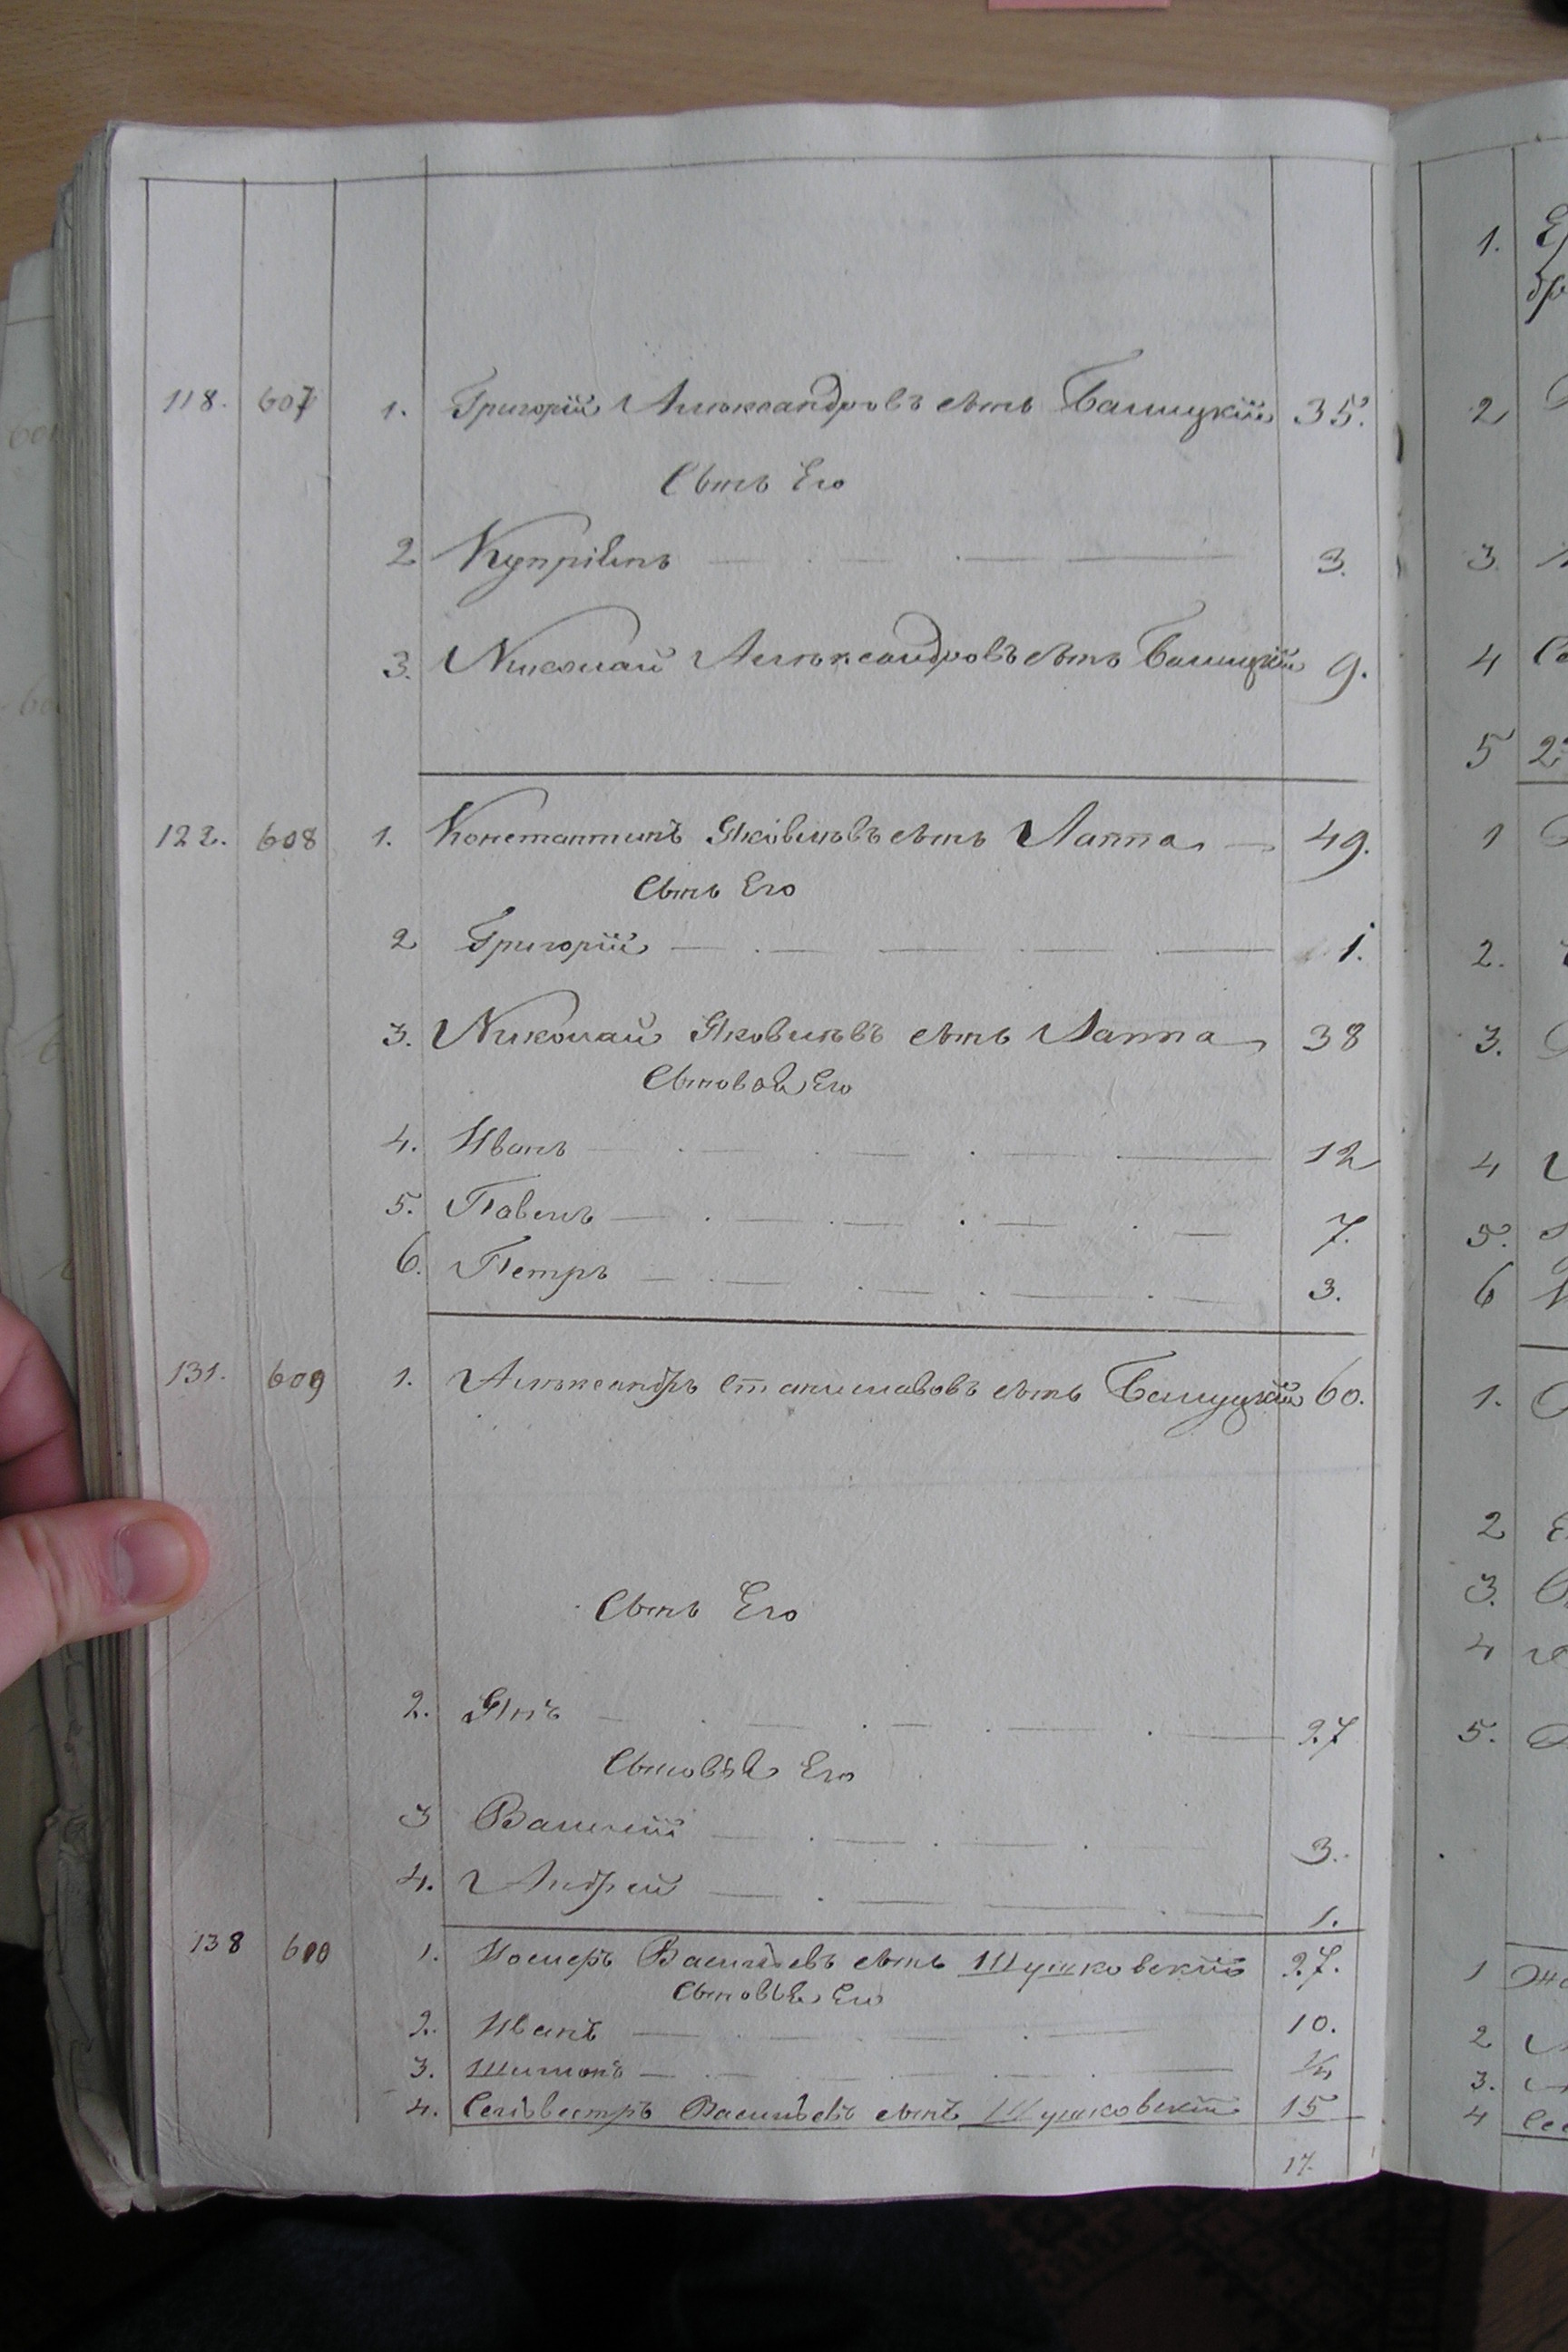 118. 607 1. Григорій Александровъ сынъ Балицкій 35.
Сынъ Его
2 Купріянъ 3.
3. Николай Александровъ сынъ Балицкій 9.
122. 608 1. Константинъ Яковлевъ сынъ Лаппа 49.
Сынъ Его
2 Григорій 1.
3. Николай Яковлевъ сынъ Лаппа 38
Сыновья Его
4. Иванъ 12
5. Павелъ 7.
6. Петръ 3.
131. 609 1. Александръ Станиславовъ сынъ Балицкій 60.
Сынъ Его
2. Янъ 27
Сыновья Его
3 Василій 3.
4. Андрей 1.
138 610 1. Васильевъ сынъ Шушковскій 27.
Сыновья Его
2. Иванъ 10.
3. Шимонъ 1/4
4. Селѣвестръ Васильевъ сынъ Шушковскій 15
17.
1.
2
3.
4
5
1
2.
3.
4
5.
6
1.
2
3.
4
5.
1
2
3.
4